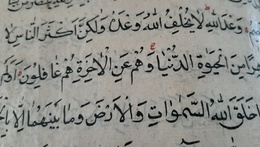 وَعْدَ اللهِ لَا يُخْلِفُ اللهُ وَعْدَهُ وَلٰكِنَّ أَكْثَرَ النَّاسِ لَا
هِرًا مِنَ الْحَيٰوةِ الدُّنْيَا وَهُمْ عَنِ الْآخِرَةِ هُمْ غَافِلُونَ أَوَلَمْ
خَلَقَ اللهُ السَّمٰوَاتِ وَالْأَرْضَ وَمَا بَيْنَهُمَا إِلَّا